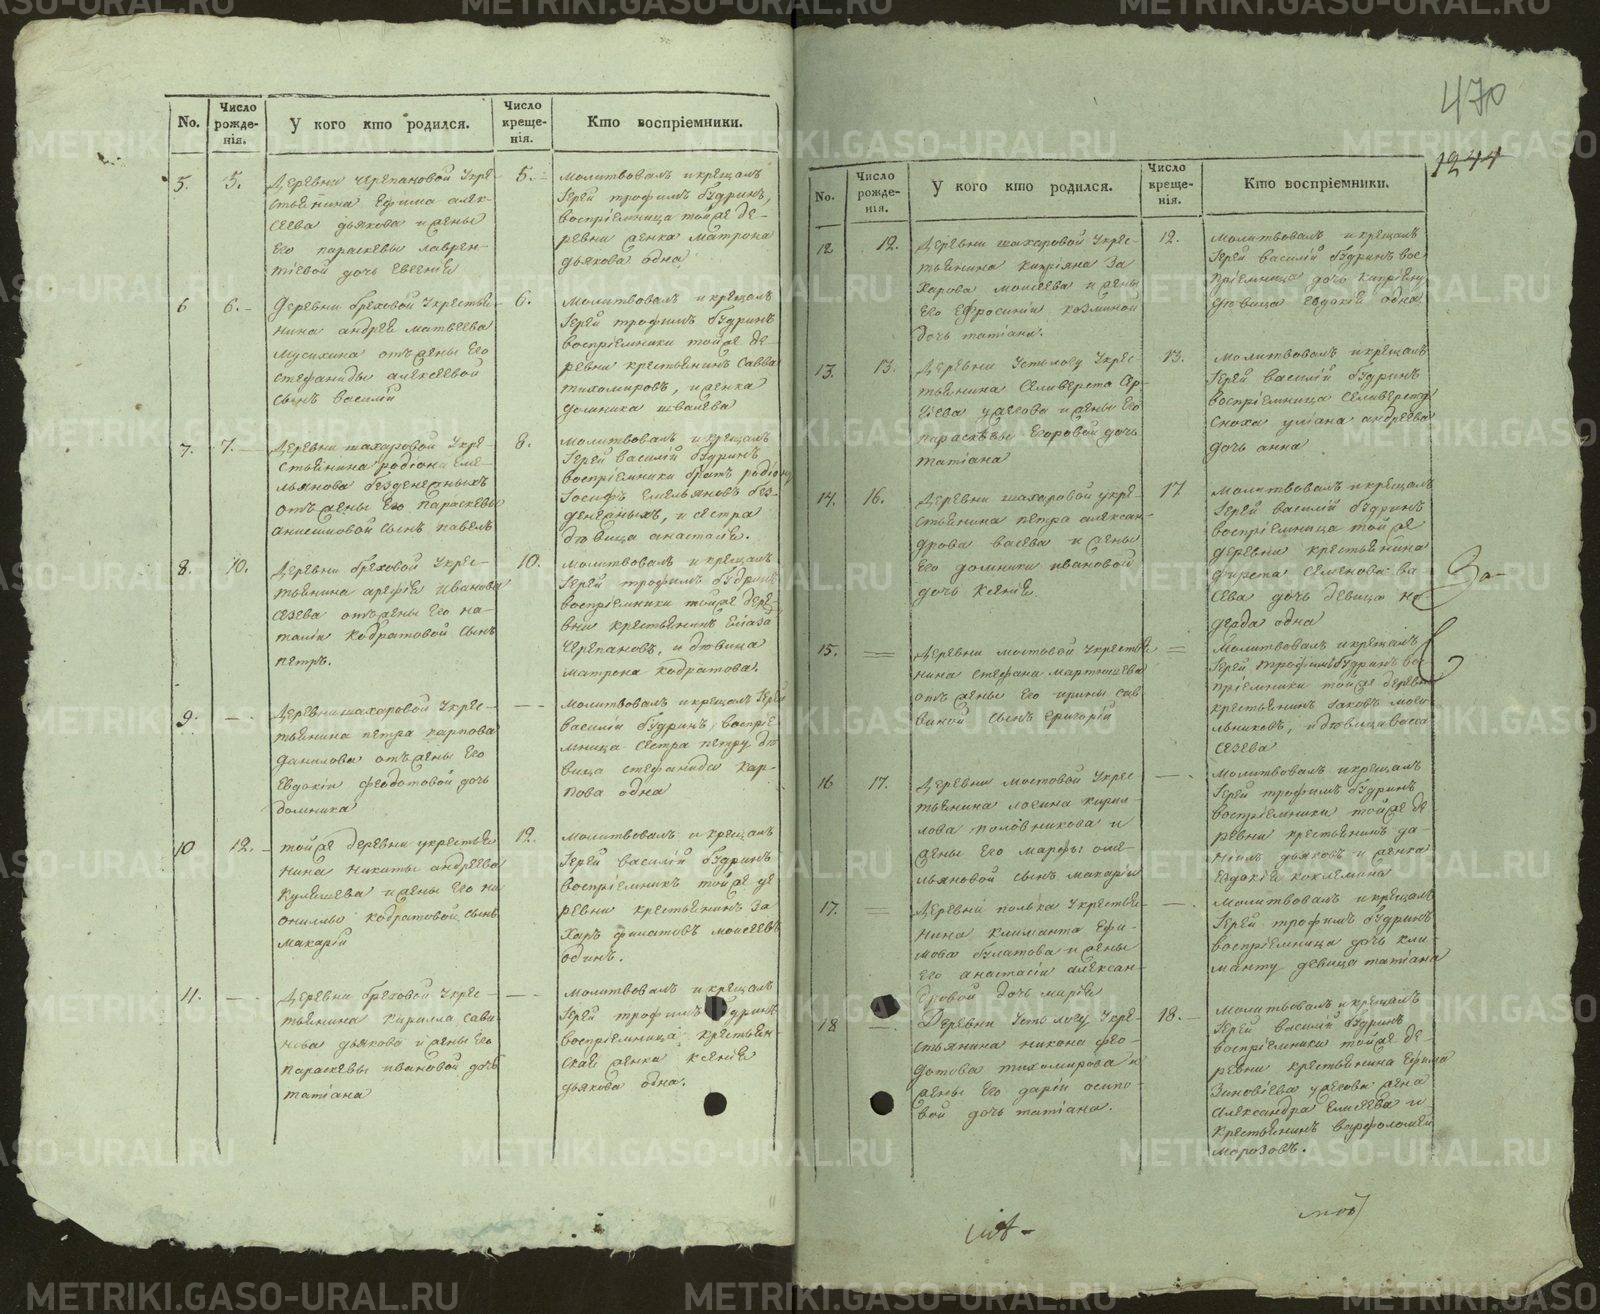 No.
Число рожде- нія.
У кого кто родился.
Число креще- нія.
Кто воспріемники.
5.
5.
Деревни черепановой укре-
стьянина Ефима алек-
сеева дьякова и жены
его параскевы лаврен-
тіевой дочь Евгенія
5.
молитвовалъ и крещалъ
Іерей трофимъ будринъ,
воспріемница тойже де-
ревни женка матрона
дьякова одна
6
6.
Деревни бреховой укрестья-
нина андрея матвеева
мусихина отъ жены его
стефаниды алексеевой
сынъ василій
6.
молитвовалъ и крещалъ
Іерей трофимъ будринъ
воспріемники тойже де-
ревни крестьянинъ савва
тихомировъ, и женка
домника швалева
7.
7.
Деревни шахаровой укре-
стьянина родіона еме-
льянова безденежныхъ
отъ жены его параскевы
анисимовой сынъ павелъ
8.
молитвовалъ и крещалъ
Іерей василій будринъ
воспріемники братъ родіону
Іосифъ Емельяновъ без-
денежныхъ, и сестра
девица анастасія.
8.
10.
Деревни бреховой укрес-
тьянина арефія иванова
сезева отъ жены его на-
таліи кодратовой сынъ
петръ.
10.
молитвовалъ и крещалъ
Іерей трофимъ будринъ
воспріемники тойже дере-
вни крестьянинъ
черепановъ, и девица
матрона кодратова.
9.
Деревни шахаровой укрес-
тьянина петра карпова
данилова отъ жены его
Евдокіи феодотовой дочь
домника
молитвовалъ и крещалъ Іерей
василій будринъ, воспріе-
мница сестра петру де-
вица стефанида кар-
пова одна
10
12.
тойже деревни укрестья-
нина никиты андреева
кулишева и жены его не-
онилы кодратовой сынъ
макарій
12.
молитвовалъ и крещалъ
Іерей василій будринъ
воспріемникъ тойже де
ревни крестьянинъ за
харъ филатовъ моисеевъ
одинъ.
11.
Деревни бреховой укрес-
тьянина кирилла сави
нова дьякова и жены его
параскевы ивановой дочь
татіана
молитвовалъ и крещалъ
Іерей трофимъ будринъ
воспріемница крестьян
ская женка ксенія
дьякова одна.
470
1244
No.
Число рожде- нія.
У кого кто родился.
Число креще- нія.
Кто воспріемники.
12
12.
Деревни шахаровой укрес-
тьянина кипріяна за
харова моисеева и жены
его Ефросиніи козминой
дочь татіана.
12.
молитвовалъ и крещалъ
Іерей василій будринъ вос
пріемница дочь кипріяну
девица евдокія одна
13.
13.
Деревни устьлогу укрес
тьянина селиверста сер-
гіева ужегова и жены его
параскевы Егоровой дочь
татіана
13.
молитвовалъ и крещалъ
Іерей василій будринъ
воспріемница селиверсту
сноха уліана андреева
дочь анна
14.
16.
Деревни шахаровой укре-
стьянина петра алексан-
дрова васева и жены
его домники ивановой
дочь ксенія.
17
молитвовалъ и крещалъ
Іерей василій будринъ
воспріемница тойже
деревни крестьянина
фирста семенова ва-
сева дочь девица на
дежда одна
За-
15.
Деревни мостовой укрестья
нина стефана мартюшева
отъ жены его ирины сав
виной сынъ григорій
молитвовалъ и крещалъ
Іерей трофимъ будринъ вос-
пріемники тойже деревни
крестьянинъ Іаковъ
льниковъ, и девица васса
сезева
16
17.
Деревни мостовой укрес
тьянина логина кирил-
лова половникова и
жены его марфы оме-
льяновой сынъ макарій
молитвовалъ и крещалъ
Іерей трофимъ будринъ
воспріемники тойже де
ревни крестьянинъ да-
ніилъ дьяковъ и женка
Евдокія коклемина
17.
Деревни полька укрестья-
нина климанта Ефи-
мова булатова и жены
его анастасіи алексан-
дровой дочь марія
молитвовалъ и крещалъ
Іерей трофимъ будринъ
воспріемница дочь кли-
манту девица татіана
18
Деревни устьлогу укре-
стьянина никона фео-
дотова тихомирова и
жены его даріи осипо-
вой дочь татіана.
18.
молитвовалъ и крещалъ
Іерей василій будринъ
воспріемники тойже де-
ревни крестьянина Ефима
Зиновіева ужегова жена
александра Елисеева и
крестьянинъ варфоломей
морозовъ.
той